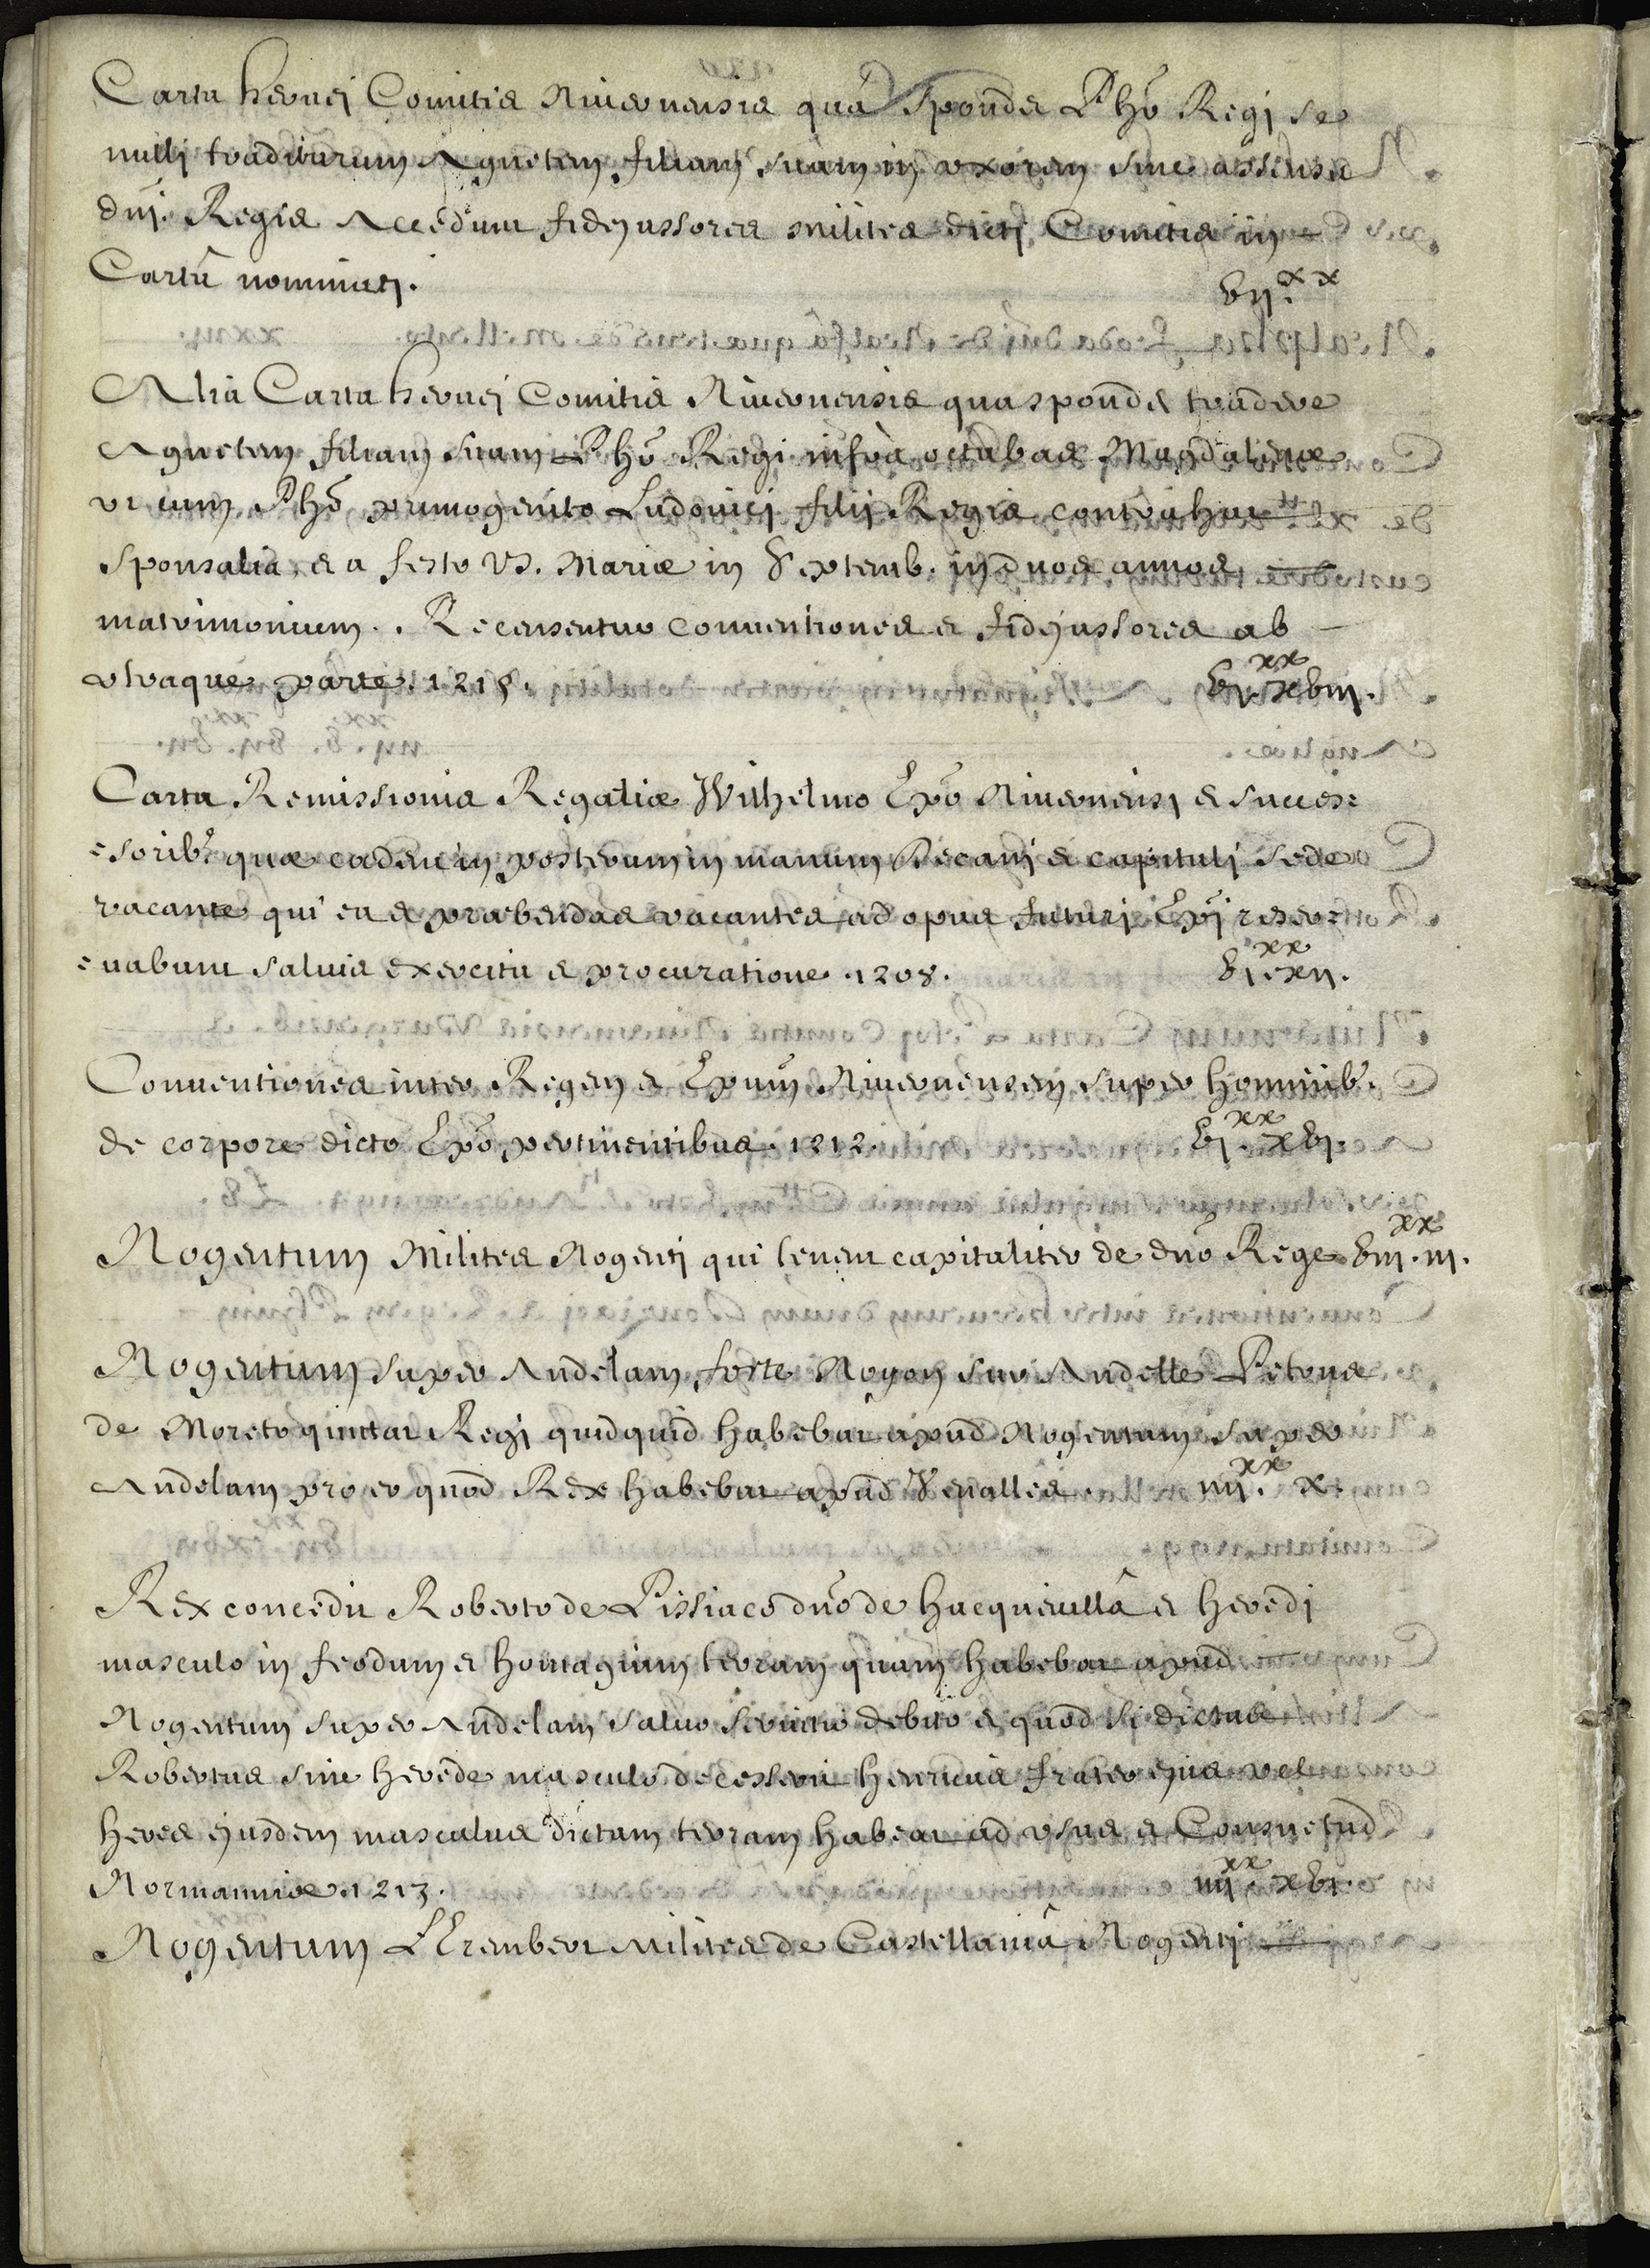 Carta hervei Comitis Nivernensis quâ spondet Phõ Regi se
nulli traditurum Agnetem filiam suam in uxorem sine assensu
dñi. Regis Accedunt fidejussores milites dicti Comitis in
Cartâ nominati.
vii.xx
Alia Carta hervei Comitis Nivernensis qua spondet tradere
Agnetem filiam suam Phõ Regi infra octabas Magdalenæ
ut cum Phõ primogenito Ludovici filij Regis contrahat
sponsalia, et a festo B. Mariæ in Septemb. in duos annos
matrimonium. Recensentur conventiones et fidejussores ab
utraque parte. 1215.
vi.xx xviii.
Carta Remissionis Regaliæ Wilhelmo Epõ Nivernensi et succes=
=sorib. quæ cadent in posterum in manum Decani et capituli sede
vacante qui ea et præbendas vacantes ad opus futuri Epĩ reser=
=vabunt salvis exercitu et procuratione. 1208.
vi.xx xii.
Conventiones inter Regem et Epum Nivernensem super hominib.
de corpore dicto Epõ pertinentibus. 1212.
vi.xx xvi.
Nogentum Milites Nogenti qui tenent capitaliter de dñO Rege viii.xx iii.
Nogentum super Andelam, forte Noyon sur Andelle Petrus
de Moreto quittat Regi quidquid habebat apud Nogentum super
Andelam pro eo quod Rex habebat apud Venalles.
iiii.xx x.
Rex concedit Roberto de Pissiaco dño de hacquevillâ et heredi
masculo in feodum et homagium terram quam habebat apud
Nogentum super Andelam salvo servitio debito et quod si dictus
Robertus sine herede masculo decesserit henricus frater ejus vel
heres ejusdem masculus dictam terram habeat ad usus et Consuetud
Normanniæ. 1213.
iiii.xx xvi.
Nogentum L'Erembert milites de Castellaniâ Nogenti